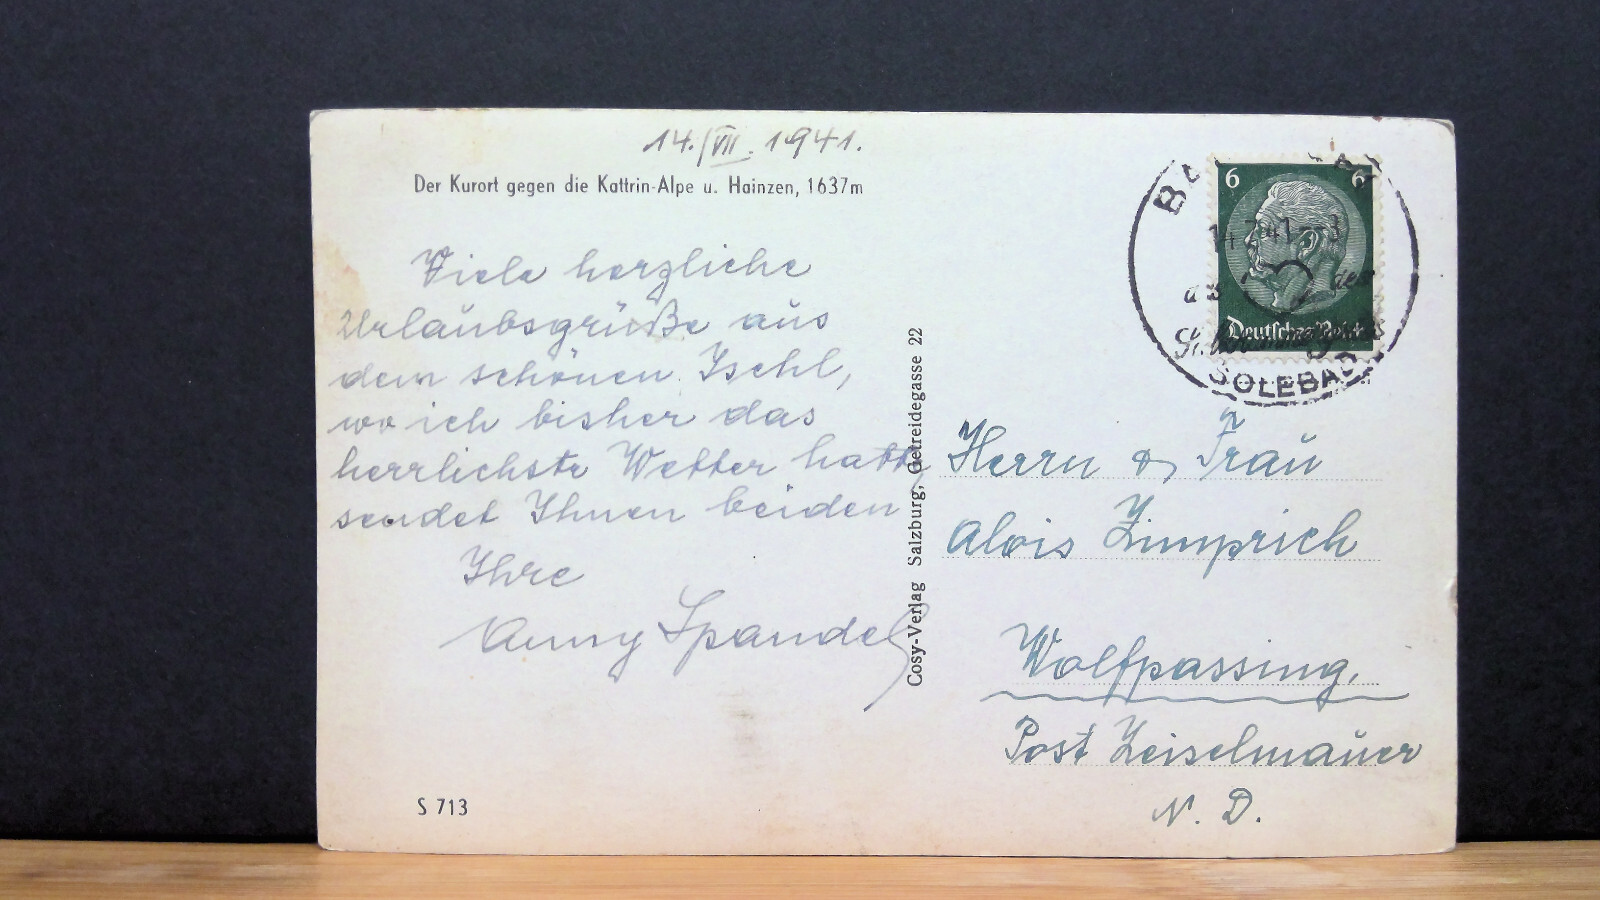 14./VII. 1941.
Der Kurort gegen die Kattrin-Alpe u. Hainzen, 1637m
Viele herzliche
Urlaubsgrüße aus
dem schönen Ischl,
wo ich bisher das
herrlichste Wetter hatte
sendet Ihnen beiden
Ihre
Anny Spandel
S 713
Cosy-Verlag Salzburg, Getreidegasse 22
6 6
Deutsches Reich
14.7.41
SOLEBAD
Herrn & Frau
Alois Zimprich
Wolfpassing,
Post Zeiselmauer
N. D.